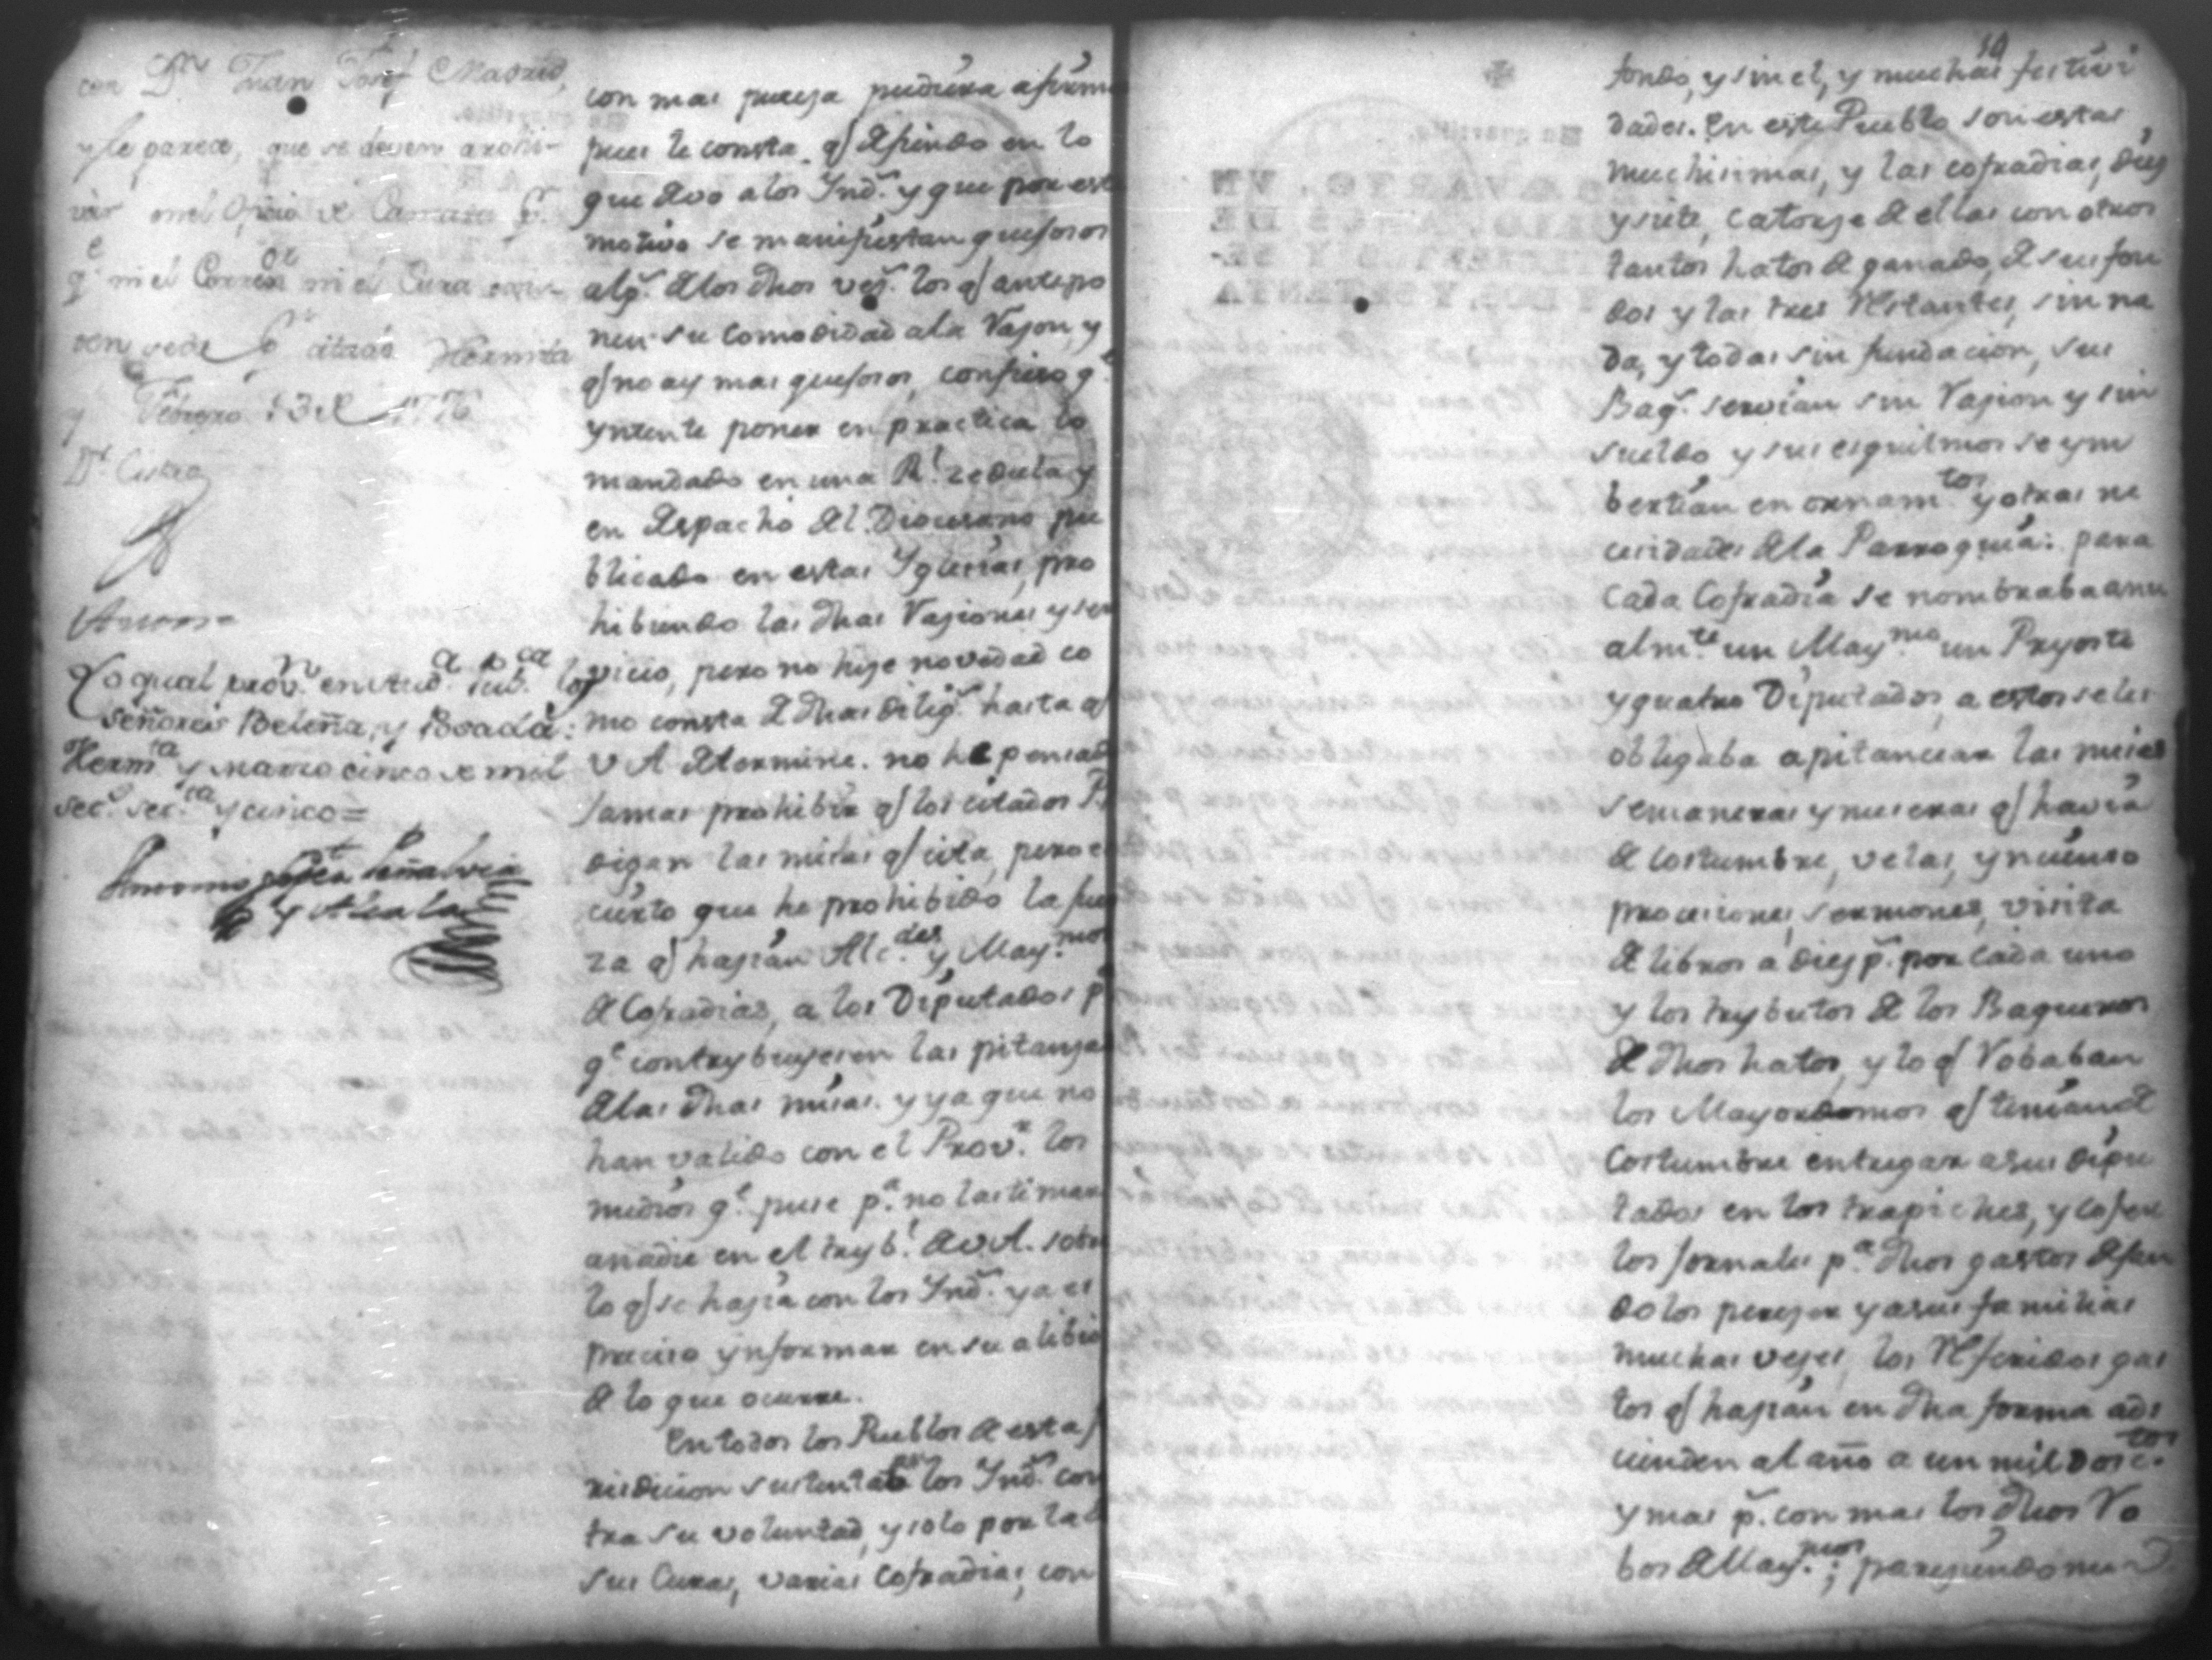 con Dn Juan Josef Madrid,
y le parece, que se deven archi-
var en el Oficio de Camara
qe ni el Correxor ni el Cura
citada Hermita
y Febrero 13 de 1776
Dr Cistue
Lo qual prov.n
señores Beleña, y Boada:
Herm.ta y Marzo cinco de mil
set.s set.ta y cinco=
Antonio Peñalver
y Alcala
con mas pureza pudiera afirm
pues le consta q defiendo en lo
que devo a los Ynd.s y que por est
motivo se manifiestan quejosos
alg.s de los dhos vez.s los q antepo
nen su comodidad a la Razon, y
q no ay mas quejosos, confieso q.e
yntente poner en practica lo
mandado en una R.l zedula y
en despacho del Diocesano pu
blicado en estas Yglesias, pro
hibiendo las dhas Raziones y ser
vicio, pero no hize novedad co
mo consta de dhas dilig.s hasta q
V A determine. no he pensad
jamas prohibir q los citados P
digan las misas q cita, pero e
cierto que he prohibido la fuer
za q hazian Alc.des y May.mos
de Cofradias, a los Diputados p
q.e contrybuyesen las pitanza
de las dhas misas. y ya que no
han valido con el Prov.r los
medios q.e puse p.a no lastimar
a nadie en el tryb.l de V.A. sobr
lo q se hazia con los Ynd.s ya es
preciso ynformar en su alibio
de lo que ocurre.
En todos los Pueblos de esta J
risdicion sustentan los Ynd.s con
tra su voluntad, y solo por la d
sus Curas, varias Cofradias, con
50
fondo, y sin el, y muchas festivi
dades. En este Pueblo son estas
muchisimas, y las cofradias, diez
y siete, catorze de ellas con otros
tantos hatos de ganado, de sus fon
dos y las tres restantes, sin na
da, y todas sin fundacion, sus
Baq.s servian sin Razion y sin
sueldo y sus esquilmos se ym
bertian en ornam.tos y otras ne
cesidades de la Parroquia: para
cada Cofradia se nombraba anu
alm.te un May.mo un Pryoste
y quatro Diputados, a estos se les
obligaba a pitanciar las misas
semaneras y meseras q havia
de costumbre, velas, yncienso
procesiones, sermones, visita
de libros a diez p.s por cada uno
y los trybutos de los Baqueros
de dhos hatos, y lo q Robaban
los Mayordomos q tenian de
Costumbre entregar a sus dipu
tados en los trapiches, y cojer
los jornales p.a dhos gastos dejan
dolos perezer y a sus familias
muchas vezes, los referidos gas
tos q hazian en dha forma as
cienden al año a un mil dosc.tos
y mas p.s con mas los dhos Ro
bos de May.mos; pareziendome